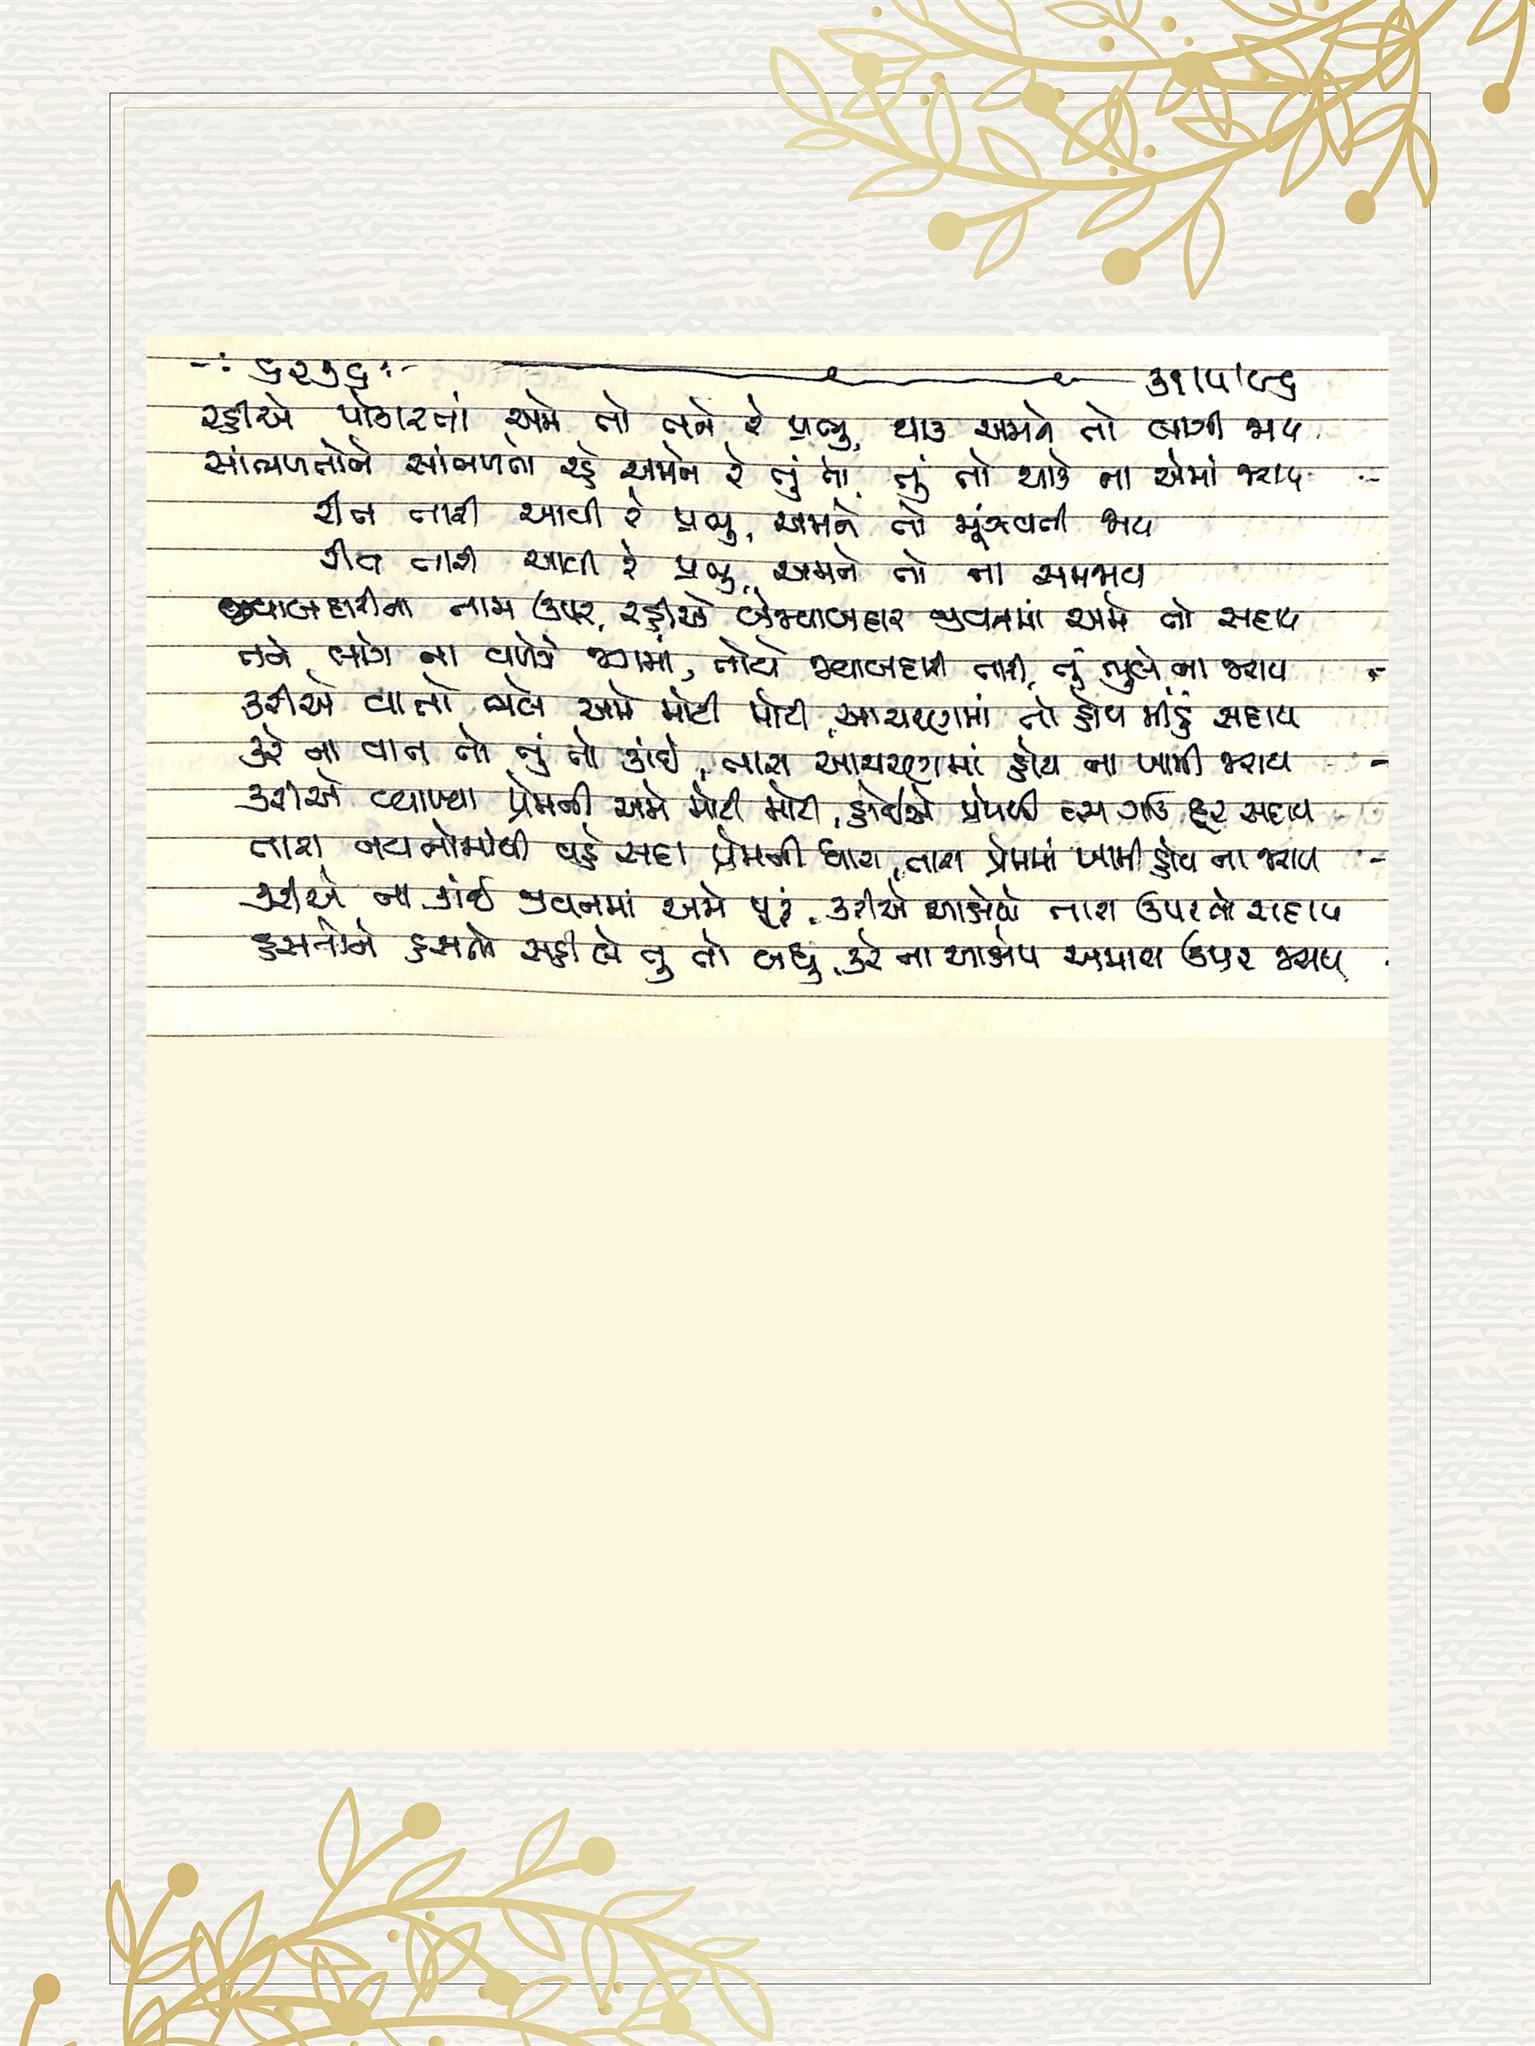 -: ૬૨૩૬ :- ૩૧।૫।૯૬
રહીએ પોકારતાં અમે તો તને રે પ્રભુ, થાક અમને તો લાગી જાય
સાંભળતોને સાંભળતો રહે અમને રે તું તો, તું તો થાકે ના એમાં જરાય
રીત તારી આવી રે પ્રભુ, અમને તો મૂંઝવતી જાય
રીત તારી આવી રે પ્રભુ, અમને તો ના સમજાય
જવાબદારીના નામ ઉપર, રહીએ બેજવાબદાર જીવનમાં અમે તો સદાય
તને લાગે ના વળગે જગમાં, તોયે જવાબદારી તારી, તું ભુલે ના જરાય
કરીએ વાતો ભલે અમે મોટી મોટી, આચરણમાં તો હોય મીંડું સદાય
કરે ના વાત તો તું તો કાંઈ, તારા આચરણમાં હોય ના ખામી જરાય
કરીએ વ્યાખ્યા પ્રેમની અમે મોટી મોટી, હોઈએ પ્રેમથી દૂર સદાય
તારા નયનોમાંથી વહે સદા પ્રેમની ધારા, તારા પ્રેમમાં ખામી હોય ના જરાય
કરીએ ના કાંઈ જીવનમાં અમે પૂરું, કરીએ આક્ષેપો તારા ઉપર તો સદાય
હસતોને હસતો સહી લે તુ તો બધુ, કરે ના આક્ષેપ અમારા ઉપર જરાય